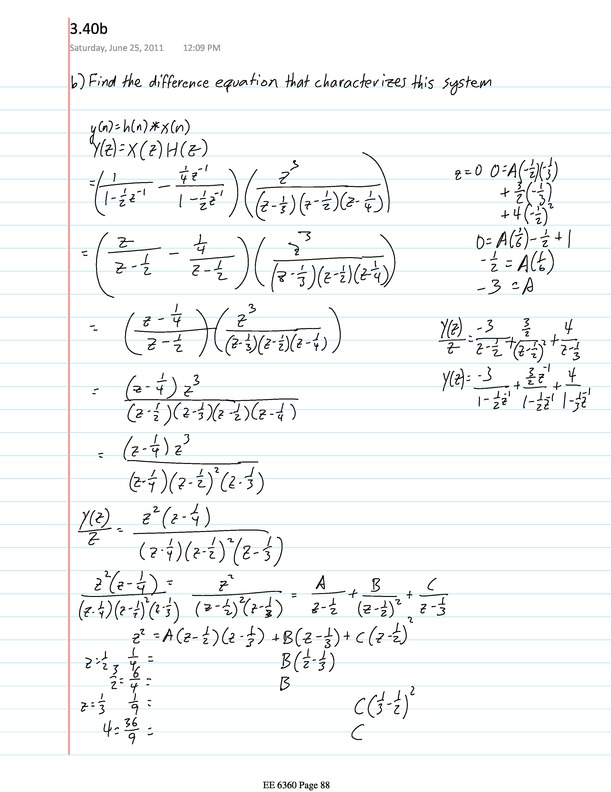 3.40b
Saturday, June 25, 2011 12:09 PM
b) Find the difference equation that characterizes this system
y(n)=h(n)*x(n)
Y(z)=X(z)H(z)
=(1/(1-1/2z^-1) - 1/4z^-1/(1-1/2z^-1))(z^3/((z-1/3)(z-1/2)(z-1/4)))
=(z/(z-1/2) - 1/4/(z-1/2))(z^3/((z-1/3)(z-1/2)(z-1/4)))
=((z-1/4)/(z-1/2))(z^3/((z-1/3)(z-1/2)(z-1/4)))
=(z-1/4)z^3/((z-1/2)(z-1/3)(z-1/2)(z-1/4))
=(z-1/4)z^3/((z-1/4)(z-1/2)^2(z-1/3))
Y(z)/z=z^2(z-1/4)/((z-1/4)(z-1/2)^2(z-1/3))
z^2(z-1/4)/((z-1/4)(z-1/2)^2(z-1/3)) = z^2/((z-1/2)^2(z-1/3)) = A/(z-1/2) + B/(z-1/2)^2 + C/(z-1/3)
z^2=A(z-1/2)(z-1/3)+B(z-1/3)+C(z-1/2)^2
z=1/2 1/4= B(1/2-1/3)
3/2=6/4= B
z=1/3 1/9= C(1/3-1/2)^2
4=36/9= C
z=0 0=A(-1/2)(-1/3)
+3/2(-1/3)
+4(-1/2)^2
0=A(1/6)-1/2+1
-1/2=A(1/6)
-3=A
Y(z)/z=-3/(z-1/2)+3/2/(z-1/2)^2+4/(z-1/3)
Y(z)=-3/(1-1/2z^-1)+3/2z^-1/(1-1/2z^-1)+4/(1-1/3z^-1)
EE 6360 Page 88